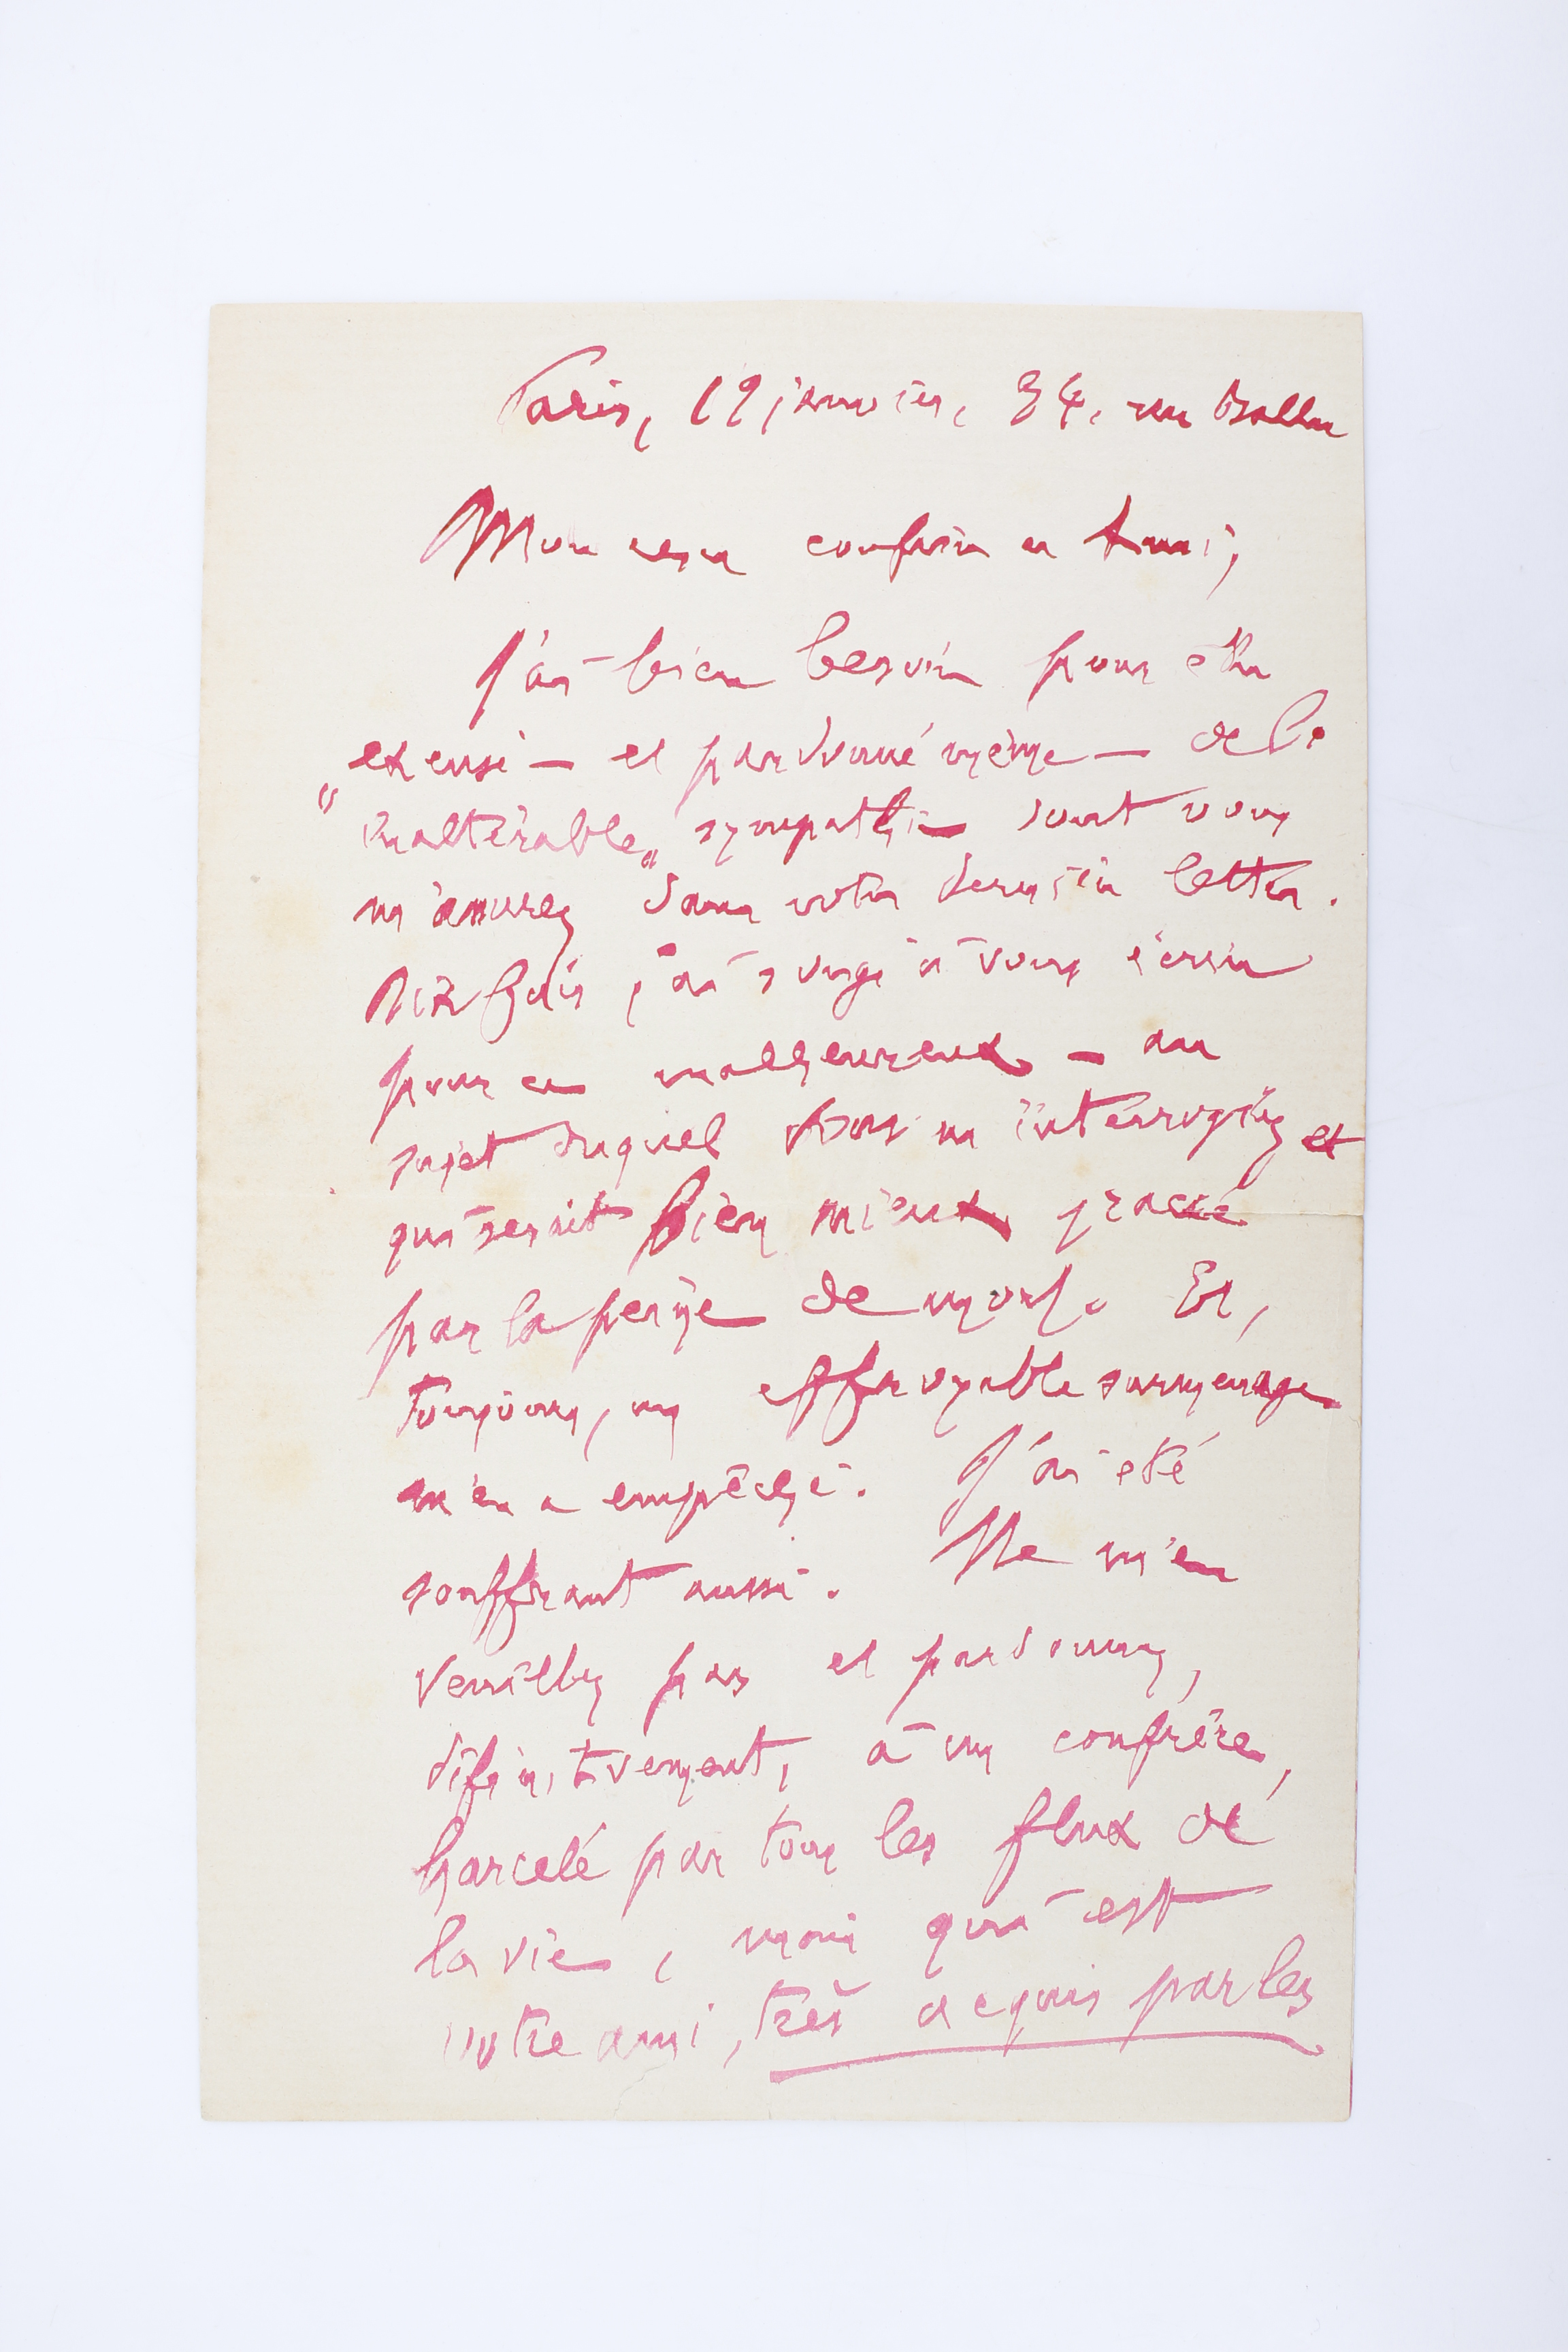 Paris, 19 janvier, 34, rue Ballu
Mon cher confrère et Ami,
J'ai bien besoin pour être
excusé — et pardonné même — de l'
"inaltérable" sympathie dont vous
m'assurez dans votre dernière lettre.
Dix fois j'ai songé à vous écrire
pour ce malheureux — au
sujet duquel vous m'interrogiez et
qui serait bien mieux gracié
par la peine de mort. Et,
toujours, un effroyable surmenage
m'en a empêché. J'ai été
souffrant aussi. Ne m'en
veuillez pas et pardonnez,
définitivement, à un confrère,
harcelé par tous les flux de
la vie, mais qui est
votre ami, très acquis par les